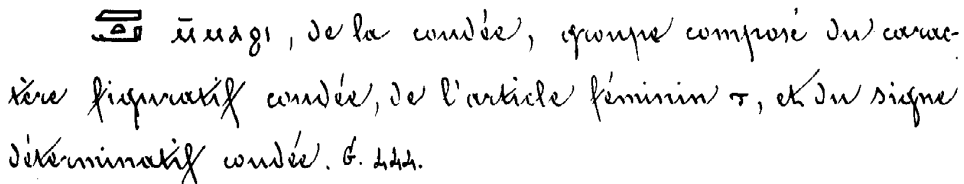 ⲙ̄ⲙⲁϩⲓ, de la coudée, groupe composé du carac-
tère figuratif coudée, de l'article féminin ⲧ, et du signe
déterminatif coudée. G. 444.